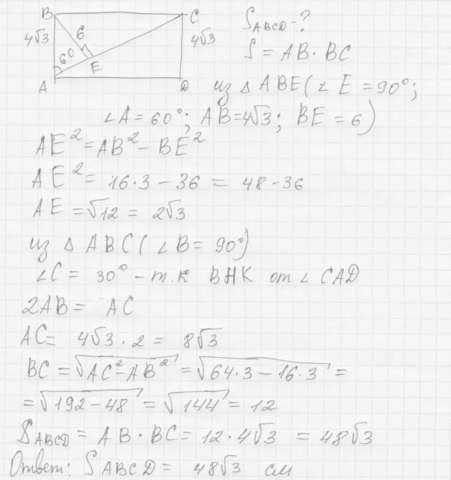 B
C
4√3
6
4√3
60
E
A
D
S ABCD - ?
S = AB · BC
из △ ABE (∠E = 90°;
∠A = 60°; AB = 4√3; BE = 6)
AE² = AB² - BE²
AE² = 16·3 - 36 = 48 - 36
AE = √12 = 2√3
из △ ABC (∠B = 90°)
∠C = 30° - т.к ВНК от ∠CAD
2AB = AC
AC = 4√3 · 2 = 8√3
BC = √AC² - AB² = √64·3 - 16·3 =
= √192 - 48 = √144 = 12
S ABCD = AB · BC = 12 · 4√3 = 48√3
Ответ: S ABCD = 48√3 см